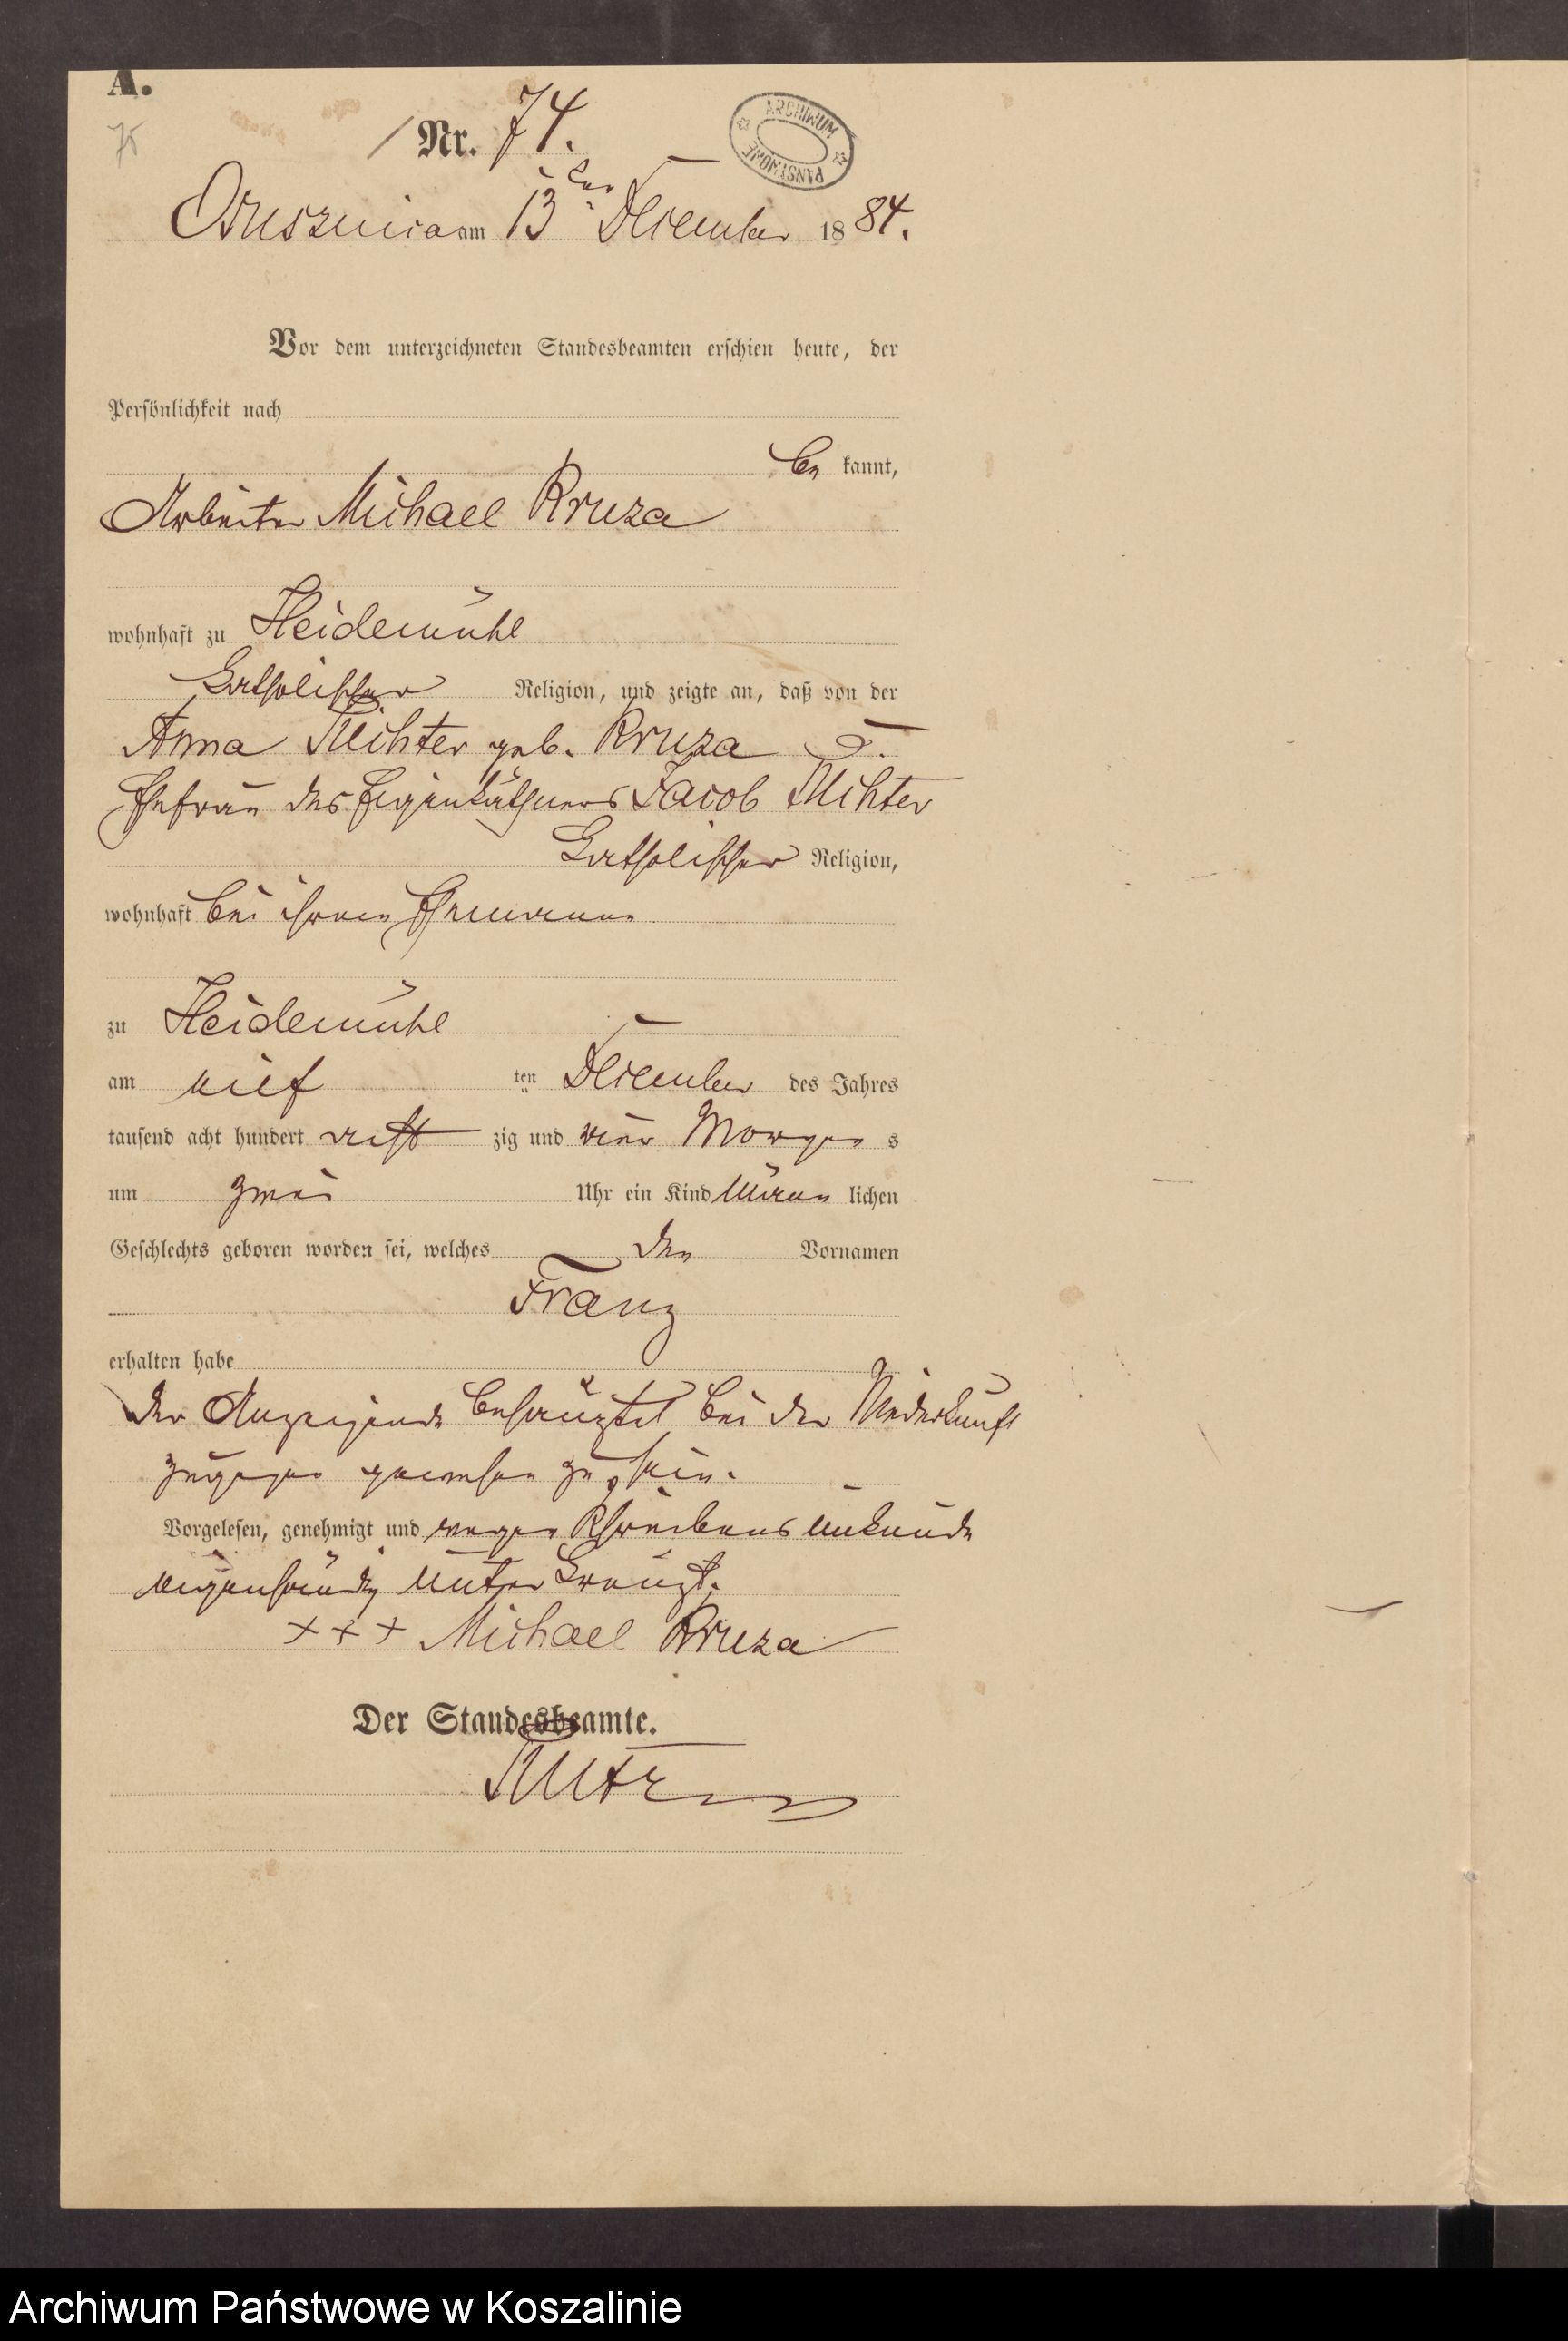 A.
75
Nr. 74.
ARCHIWUM PAŃSTWOWE
Ossusznica am 13ten December 1884.
Vor dem unterzeichneten Standesbeamten erschien heute, der
Persönlichkeit nach
be kannt,
Arbeiter Michael Kruza
wohnhaft zu Heidemühl
katholischer Religion, und zeigte an, daß von der
Anna Richter geb. Kruza
Ehefrau des Eigenkäthners Jacob Richter
katholischer Religion,
wohnhaft bei ihrem Ehemann
zu Heidemühl
am elf ten December des Jahres
tausend acht hundert acht zig und vier Morgen s
um zwei Uhr ein Kind männ lichen
Geschlechts geboren worden sei, welches den Vornamen
Franz
erhalten habe
der Anzeigende bei der Niederkunft
zugegen gewesen zu sein.
Vorgelesen, genehmigt und wegen Schreibens unkunde
eigenhändig unterkreuzt.
+ + + Michael Kruza
Der Standesbeamte.
Archiwum Państwowe w Koszalinie